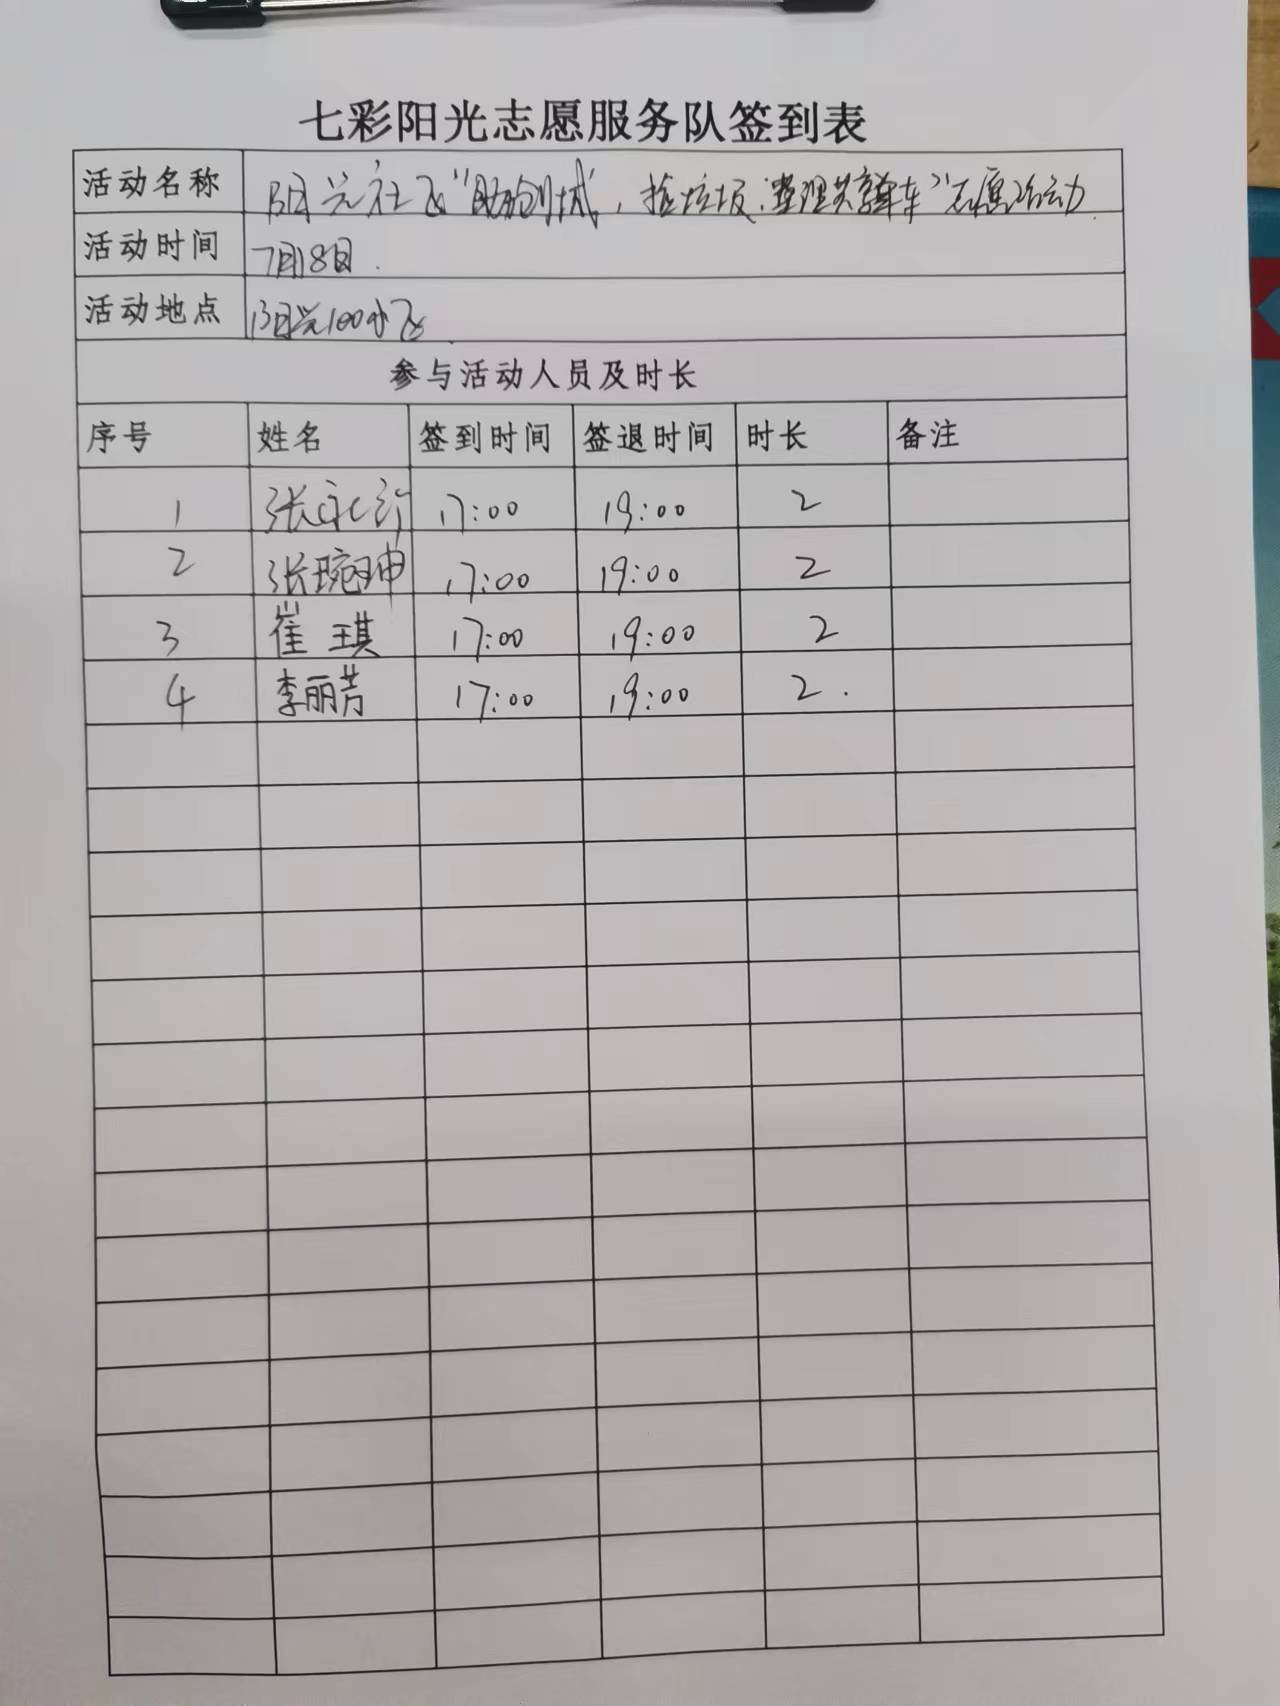 七彩阳光志愿服务队签到表
活动名称 阳光社区"助力创城，捡垃圾，整理共享单车"志愿活动
活动时间 7月18日.
活动地点 阳光100小区
参与活动人员及时长
序号 姓名 签到时间 签退时间 时长 备注
1 张 17:00 19:00 2
2 张琬珅 17:00 19:00 2
3 崔琪 17:00 19:00 2
4 李丽芳 17:00 19:00 2.